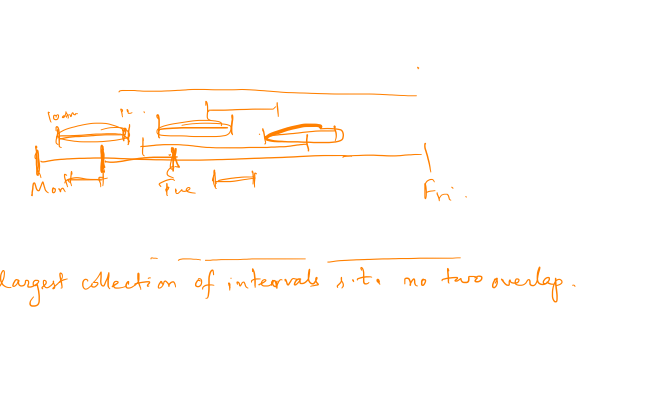 10am 12
Mon Tue Fri.
largest collection of intervals s.t. no two overlap.